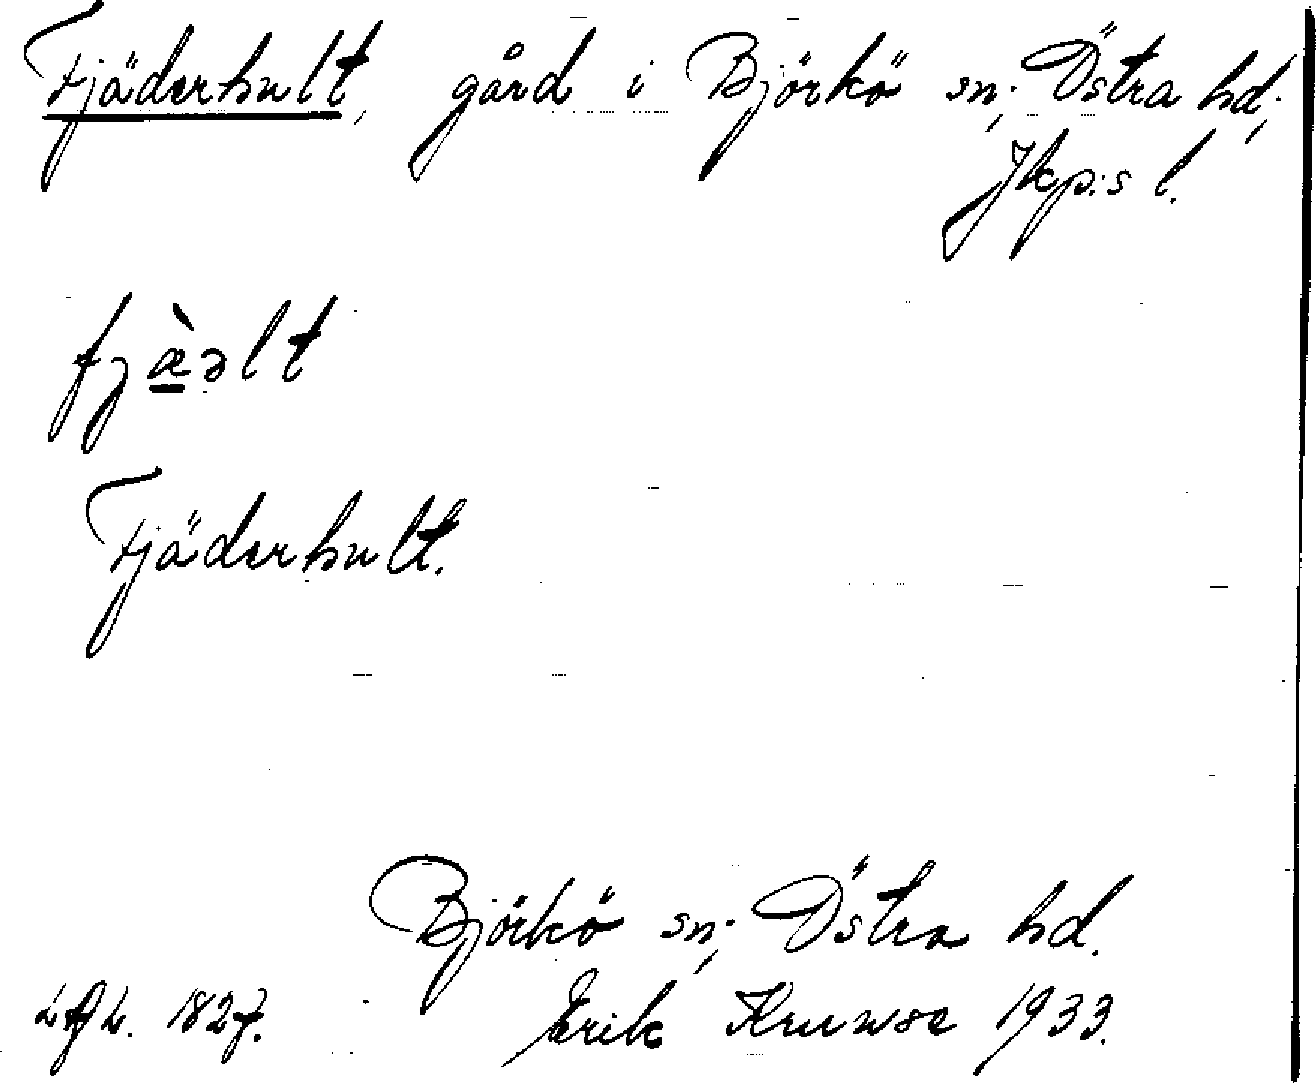 Fjäderhult, gård i Björkö sn; Östra hd;
Jkp:s l.
fjæ̀əlt
Fjäderhult.
Björkö sn; Östra hd.
1827. Erik Kruuse 1933.